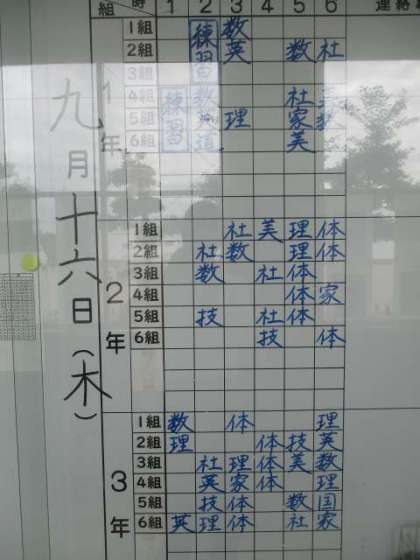 組 時 1 2 3 4 5 6 連絡
九月十六日(木)
1年
1組 練習 数
2組 英 数 社
3組
4組 練習 数 社
5組 理 家
6組 道 美
2年
1組 社 美 理 体
2組 社 数 理 体
3組 数 社 体
4組 体 家
5組 技 社 体
6組 技 体
3年
1組 数 体 理
2組 理 体 技 英
3組 社 理 体 美 数
4組 英 家 体 理
5組 技 体 数 国
6組 英 理 体 社 家